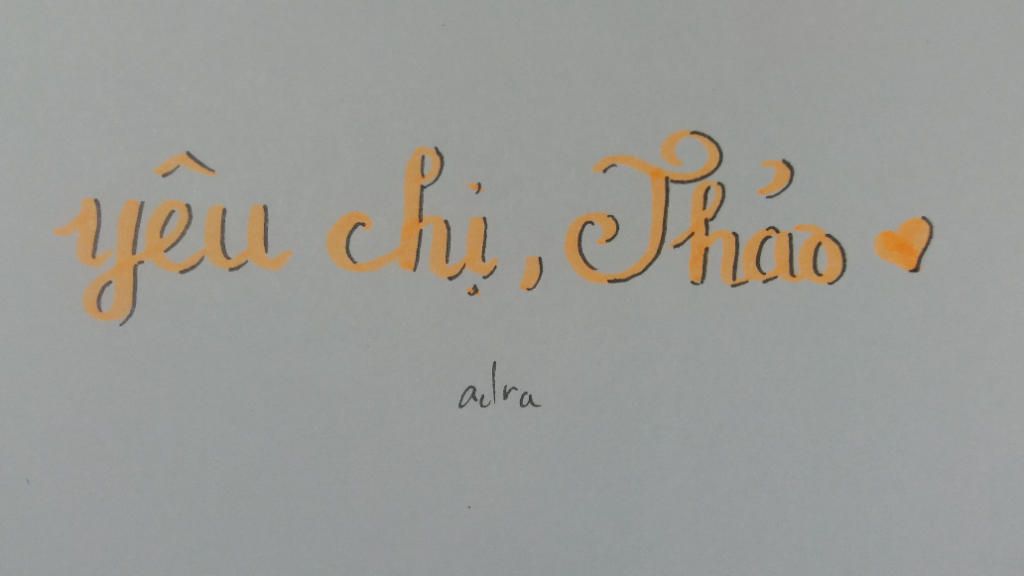 yêu chị, Thảo ♥
adra